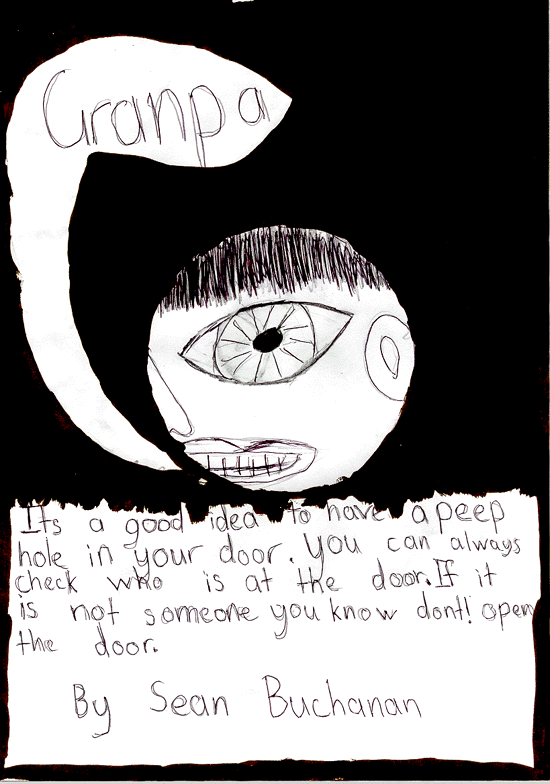 Granpa
Its a good idea to have a peep
hole in your door. You can always
check who is at the door. If it
is not someone you know dont! open
the door.
By Sean Buchanan